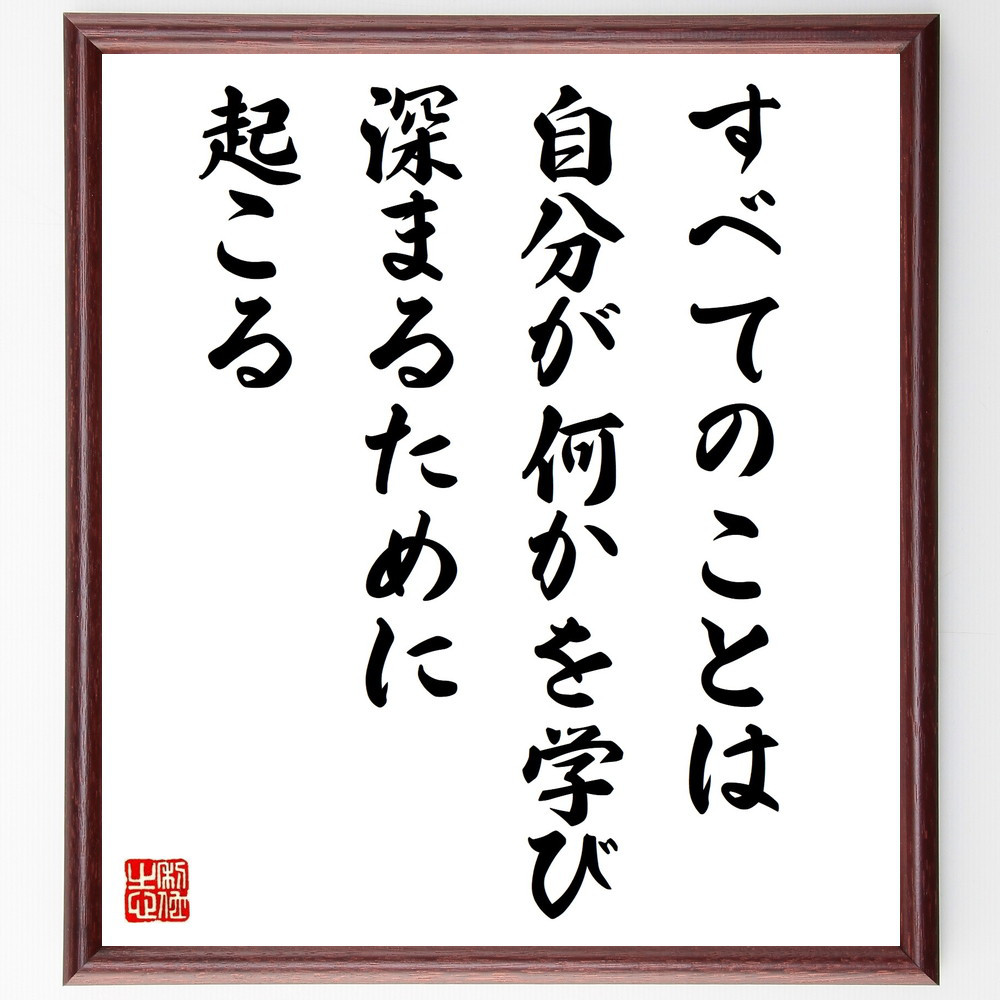 すべてのことは
自分が何かを学び
深まるために
起こる